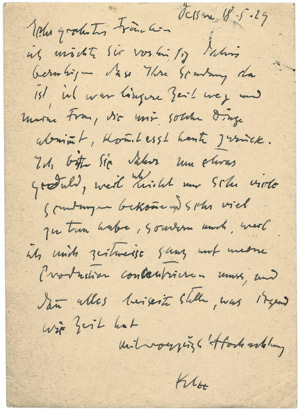 Dessau 18.5.29
Sehr geehrtes Fräulein
ich möchte Sie vorläufig dahin
beruhigen dass Ihre Sendung da
ist, ich war längere Zeit weg und
meine Frau, die mir solche Dinge
abnimmt, kommt erst heute zurück.
Ich bitte Sie daher um etwas
Geduld, weil ich nicht nur sehr viele
Sendungen bekomme und sehr viel
zu tun habe, sondern auch, weil
ich mich zeitweise ganz auf meine
Production concentrieren muss, und
dann alles beiseite stelle, was irgend
wie Zeit hat
mit vorzügl. Hochachtung
Klee